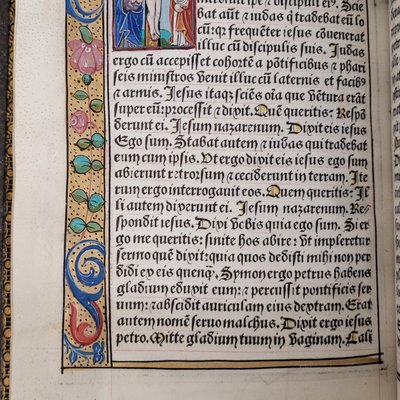 introiuit ipse & discipuli ei⁹.
Sciebat aūt & iudas q̇ tradebat eū lo
cū: q̇ frequēter iesus cōuenerat
illuc cū discipulis suis. Judas
ergo cū accepisset cohortē a pontificibus & phari
seis ministros venit illuc cū laternis et facib⁹
& armis. Jesus itaq; sciēs oīa que vētura erāt
super eū: processit & dixit. Quē queritis: Respō
derunt ei. Jesum nazarenum. Dixit eis iesus
Ego sum. Stabat autem & iudas qui tradebat
eum cum ipsis. Ut ergo dixit eis ego sum
abierunt retrorsum & ceciderunt in terram. Ite
rum ergo interrogauit eos. Quem queritis: Il
li autem dixerunt ei. Jesum nazarenum. Res
pondit iesus. Dixi vobis quia ego sum. Si er
go me queritis: sinite hos abire: Ut impleretur
sermo quē dixit: quia quos dedisti mihi non per
didi ex eis quenq̄. Symon ergo petrus habens
gladium eduxit eum: & percussit pontificis ser
uum: & abscidit auriculam eius dextram. Erat
autem nomē seruo malchus. Dixit ergo iesus
petro. Mitte gladium tuum in vaginam. Cali